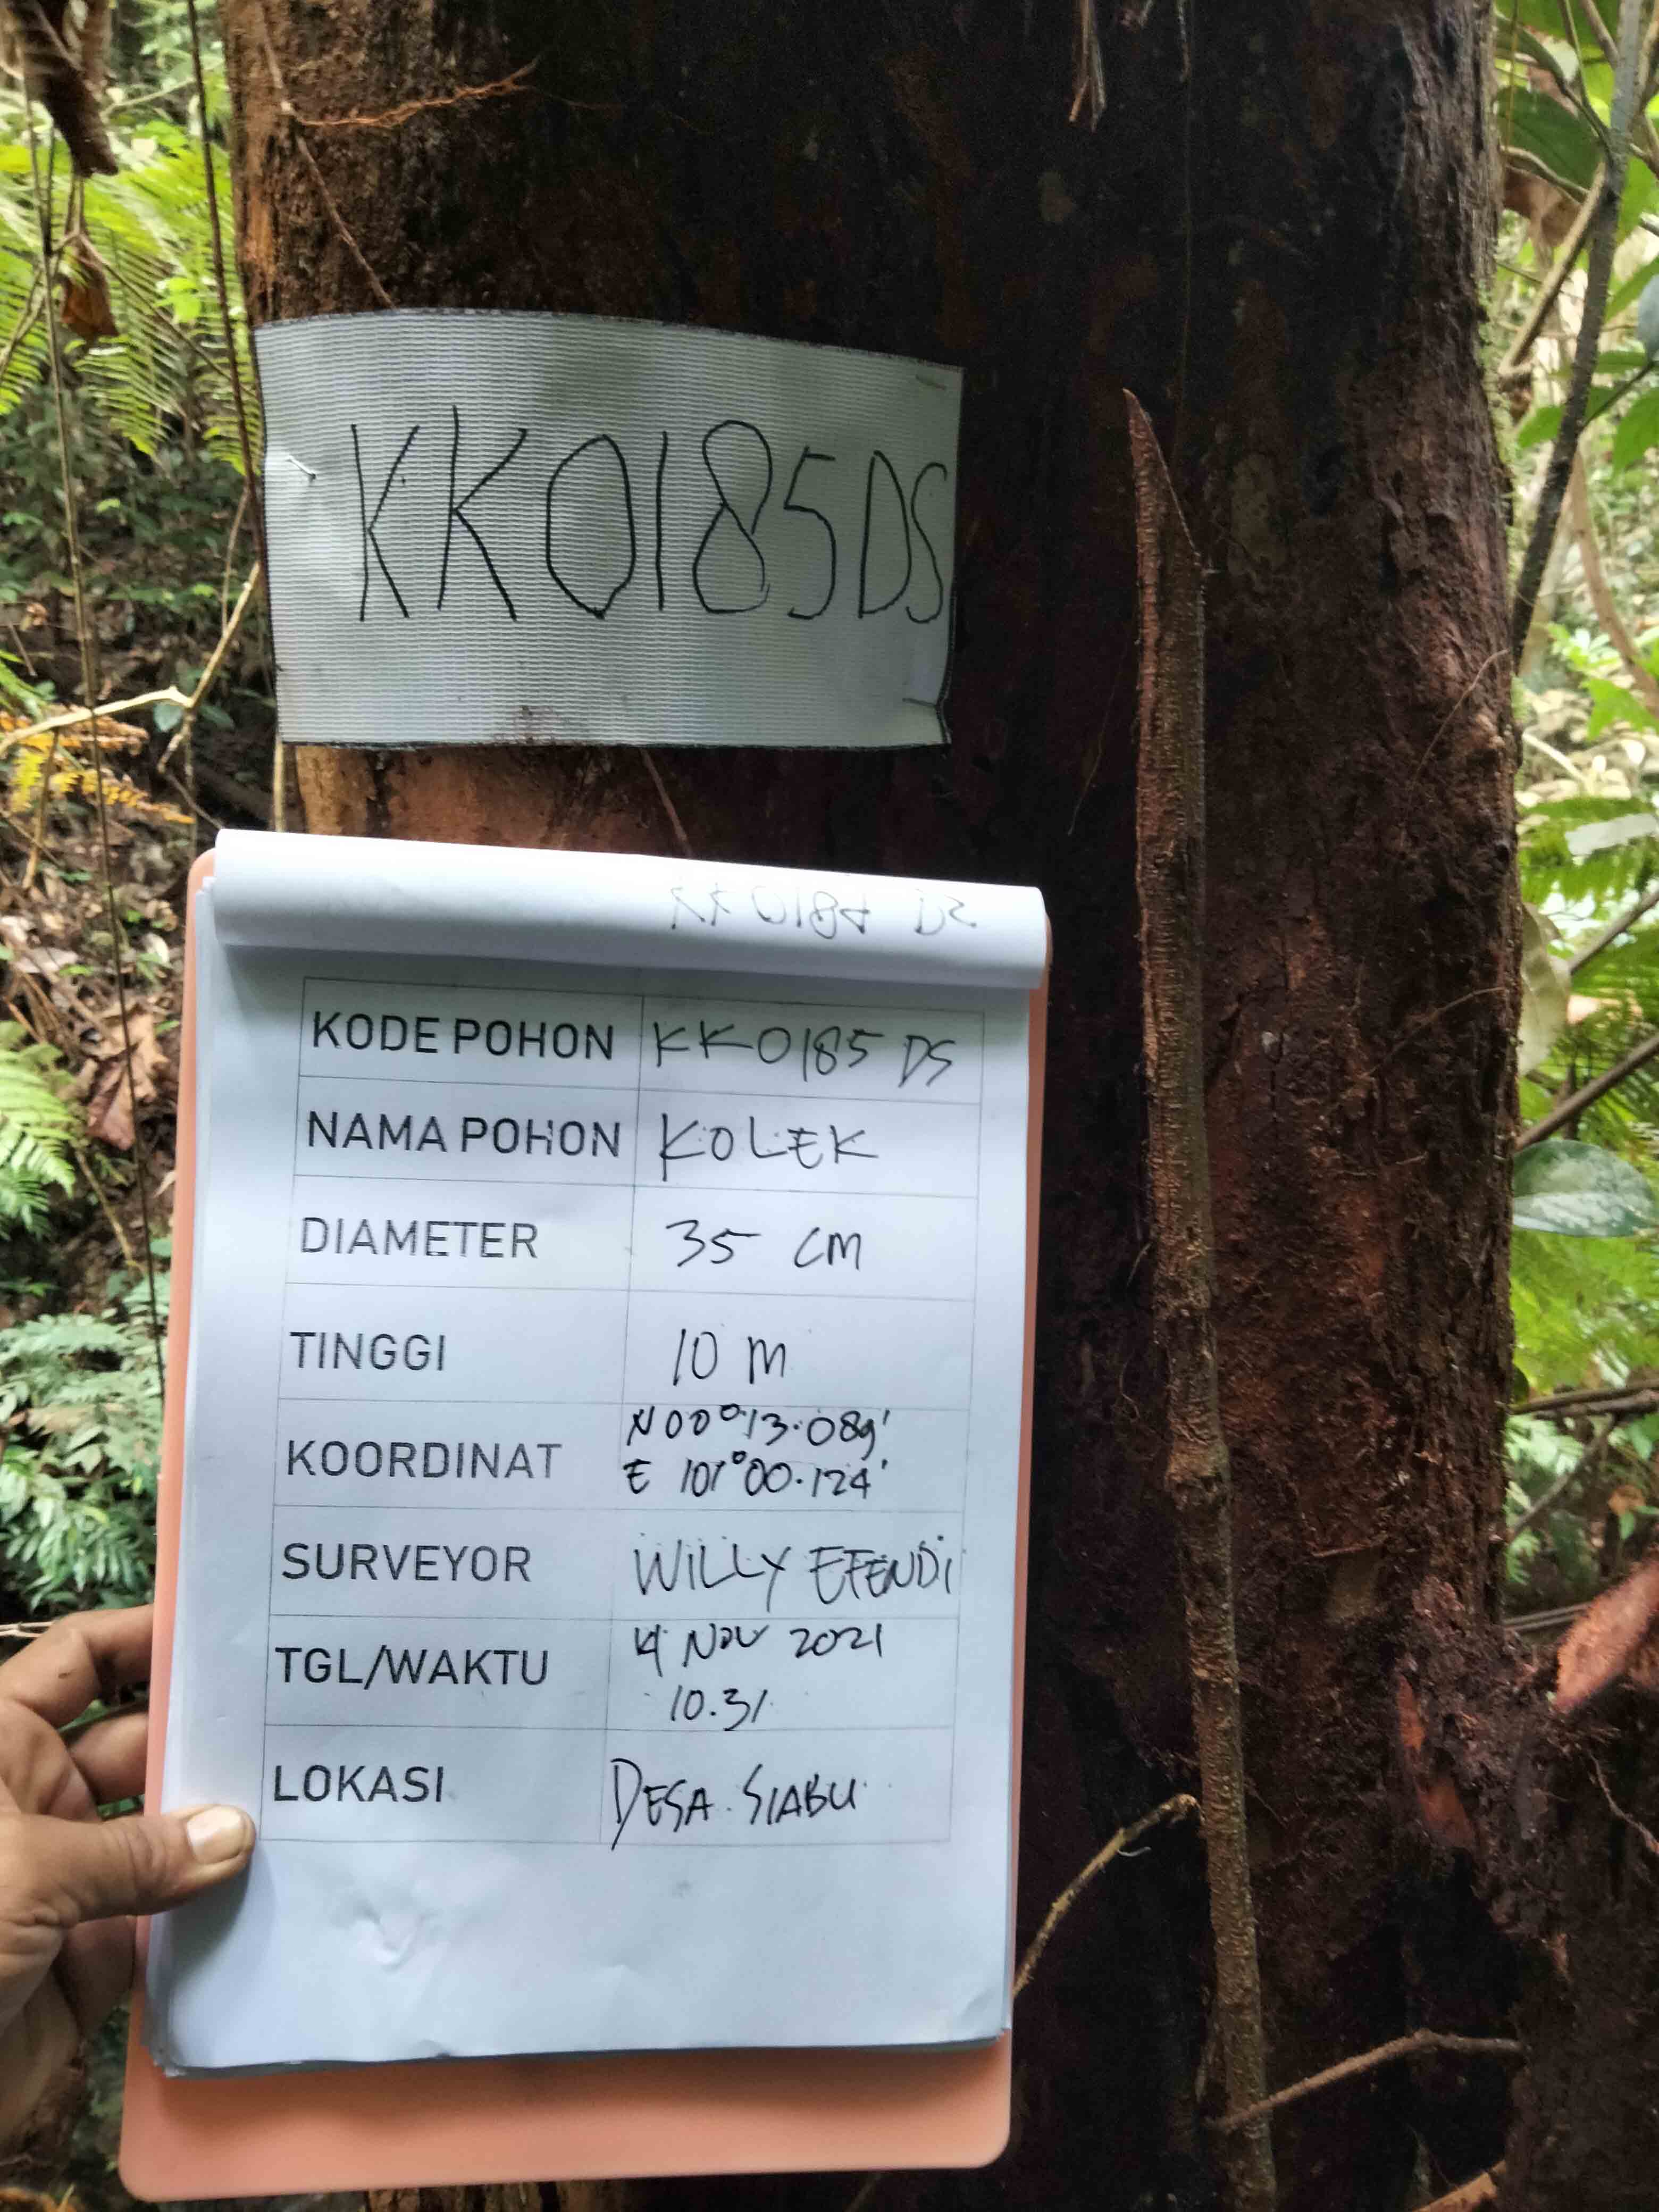 KK0185DS
KK 0184 DS
KODE POHON KK0185 DS
NAMA POHON KOLEK
DIAMETER 35 CM
TINGGI 10 M
KOORDINAT N 00°13.089'
E 101°00.124'
SURVEYOR WILLY EFENDI
TGL/WAKTU 4 NOV 2021
10.31
LOKASI DESA SIABU